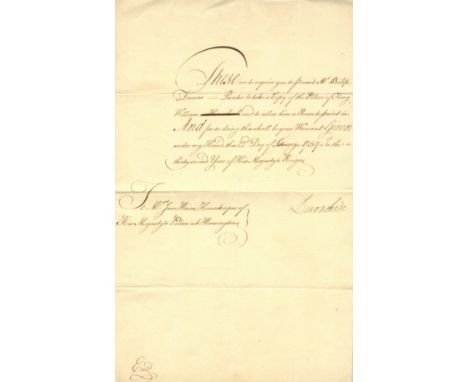 These are to require you to Permit Mr. Philip
Downes Painter to take a Copy of the Picture of King
William and to allow him a Room to paint in
And for so doing this shall be your Warrant Given
under my Hand this 22d. Day of February 1759 In the
thirty second Year of His Majesty's Reign
To Mrs. Jane Keen Housekeeper of
His Majesty's Palace at Kensington
Devonshire